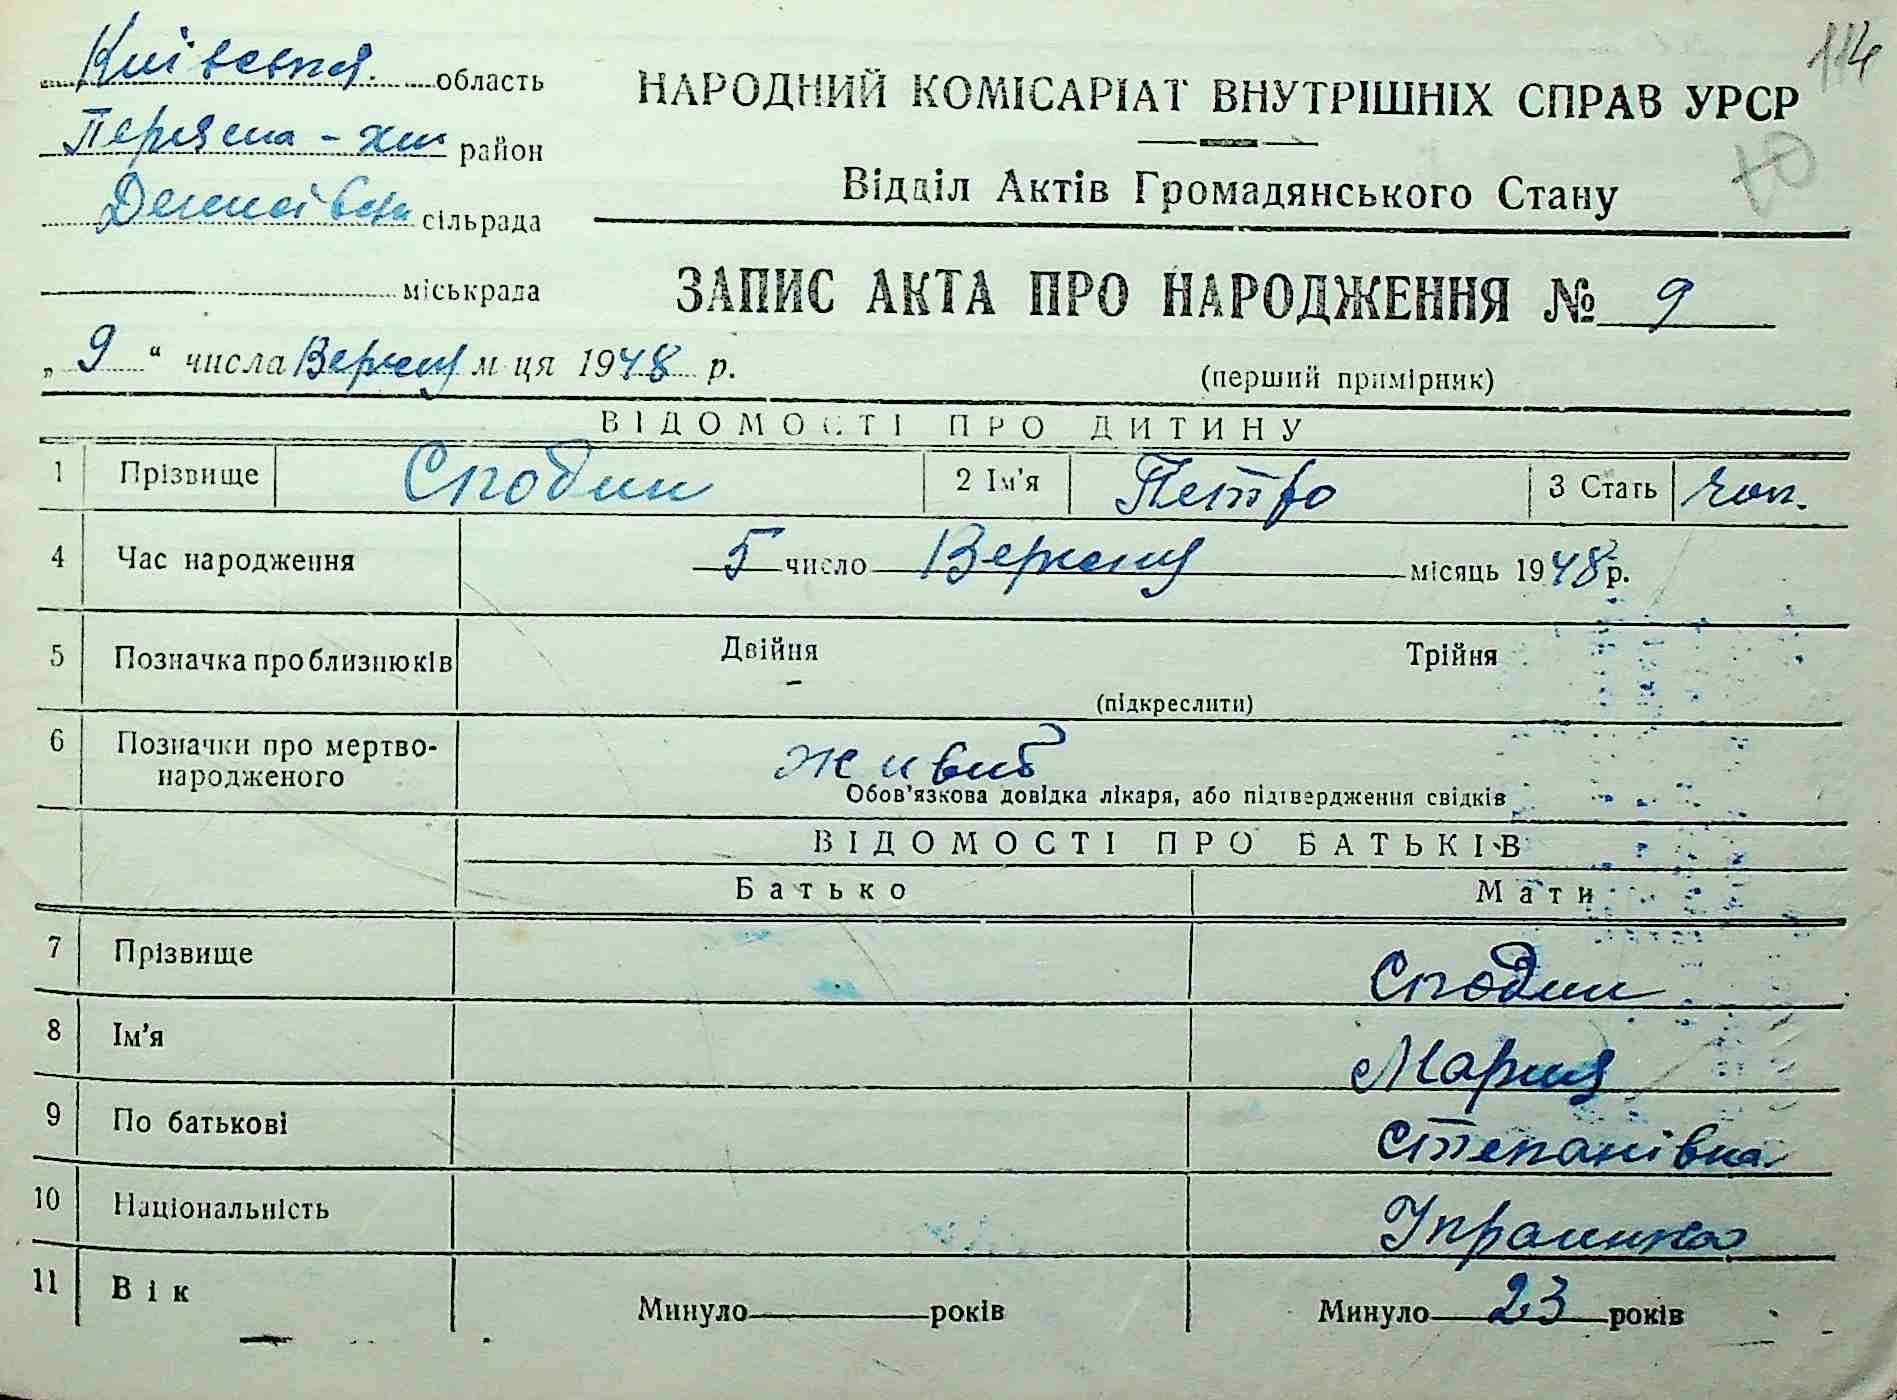 114
Київська область
НАРОДНИЙ КОМІСАРІАТ ВНУТРІШНІХ СПРАВ УРСР
Переясл-Хм район
Відділ Актів Громадянського Стану
сільрада
міськрада
ЗАПИС АКТА ПРО НАРОДЖЕННЯ № 9
„ 9 “ числа Вересня м-ця 1948 р.
(перший примірник)
ВІДОМОСТІ ПРО ДИТИНУ
1 Прізвище Сподин 2 Ім'я Петро 3 Стать чол.
4 Час народження 5 число Вересня місяць 1948 р.
5 Позначка про близнюків Двійня - Трійня
(підкреслити)
6 Позначки про мертво-
народженого живий
Обов'язкова довідка лікаря, або підтвердження свідків
ВІДОМОСТІ ПРО БАТЬКІВ
Батько Мати
7 Прізвище Сподин
8 Ім'я Мария
9 По батькові Степанівна
10 Національність Украинка
11 Вік Минуло років Минуло 23 років